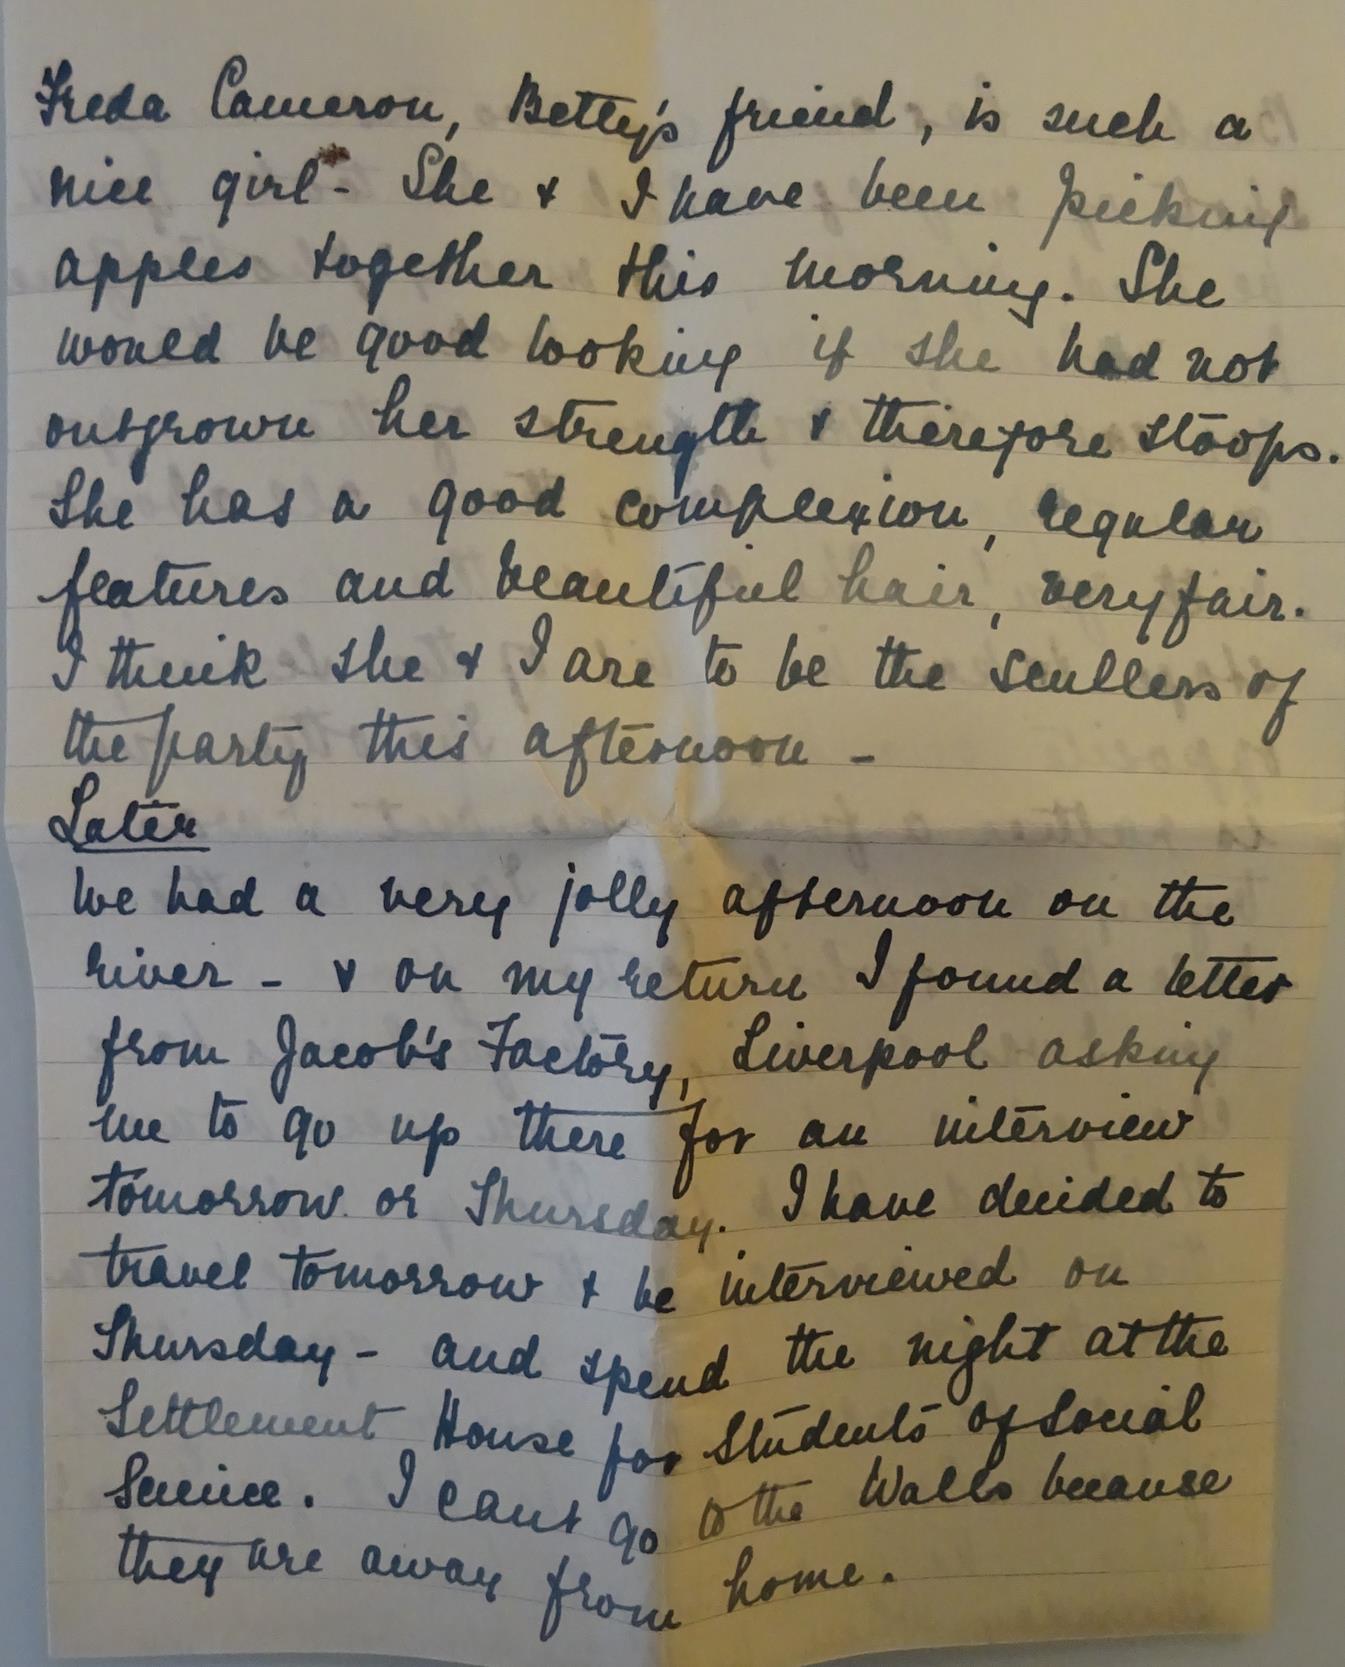 Freda Cameron, Betty's friend, is such a
nice girl - She & I have been picking
apples together this morning. She
would be good looking if she had not
outgrown her strength & therefore stoops.
She has a good complexion, regular
features and beautiful hair, very fair.
I think she & I are to be the scullers of
the party this afternoon -
Later
We had a very jolly afternoon on the
river - & on my return I found a letter
from Jacob's Factory, Liverpool asking
me to go up there for an interview
tomorrow or Thursday. I have decided to
travel tomorrow & be interviewed on
Thursday - and spend the night at the
Settlement House for Students of Social
Science. I cant go to the Walls because
they are away from home.